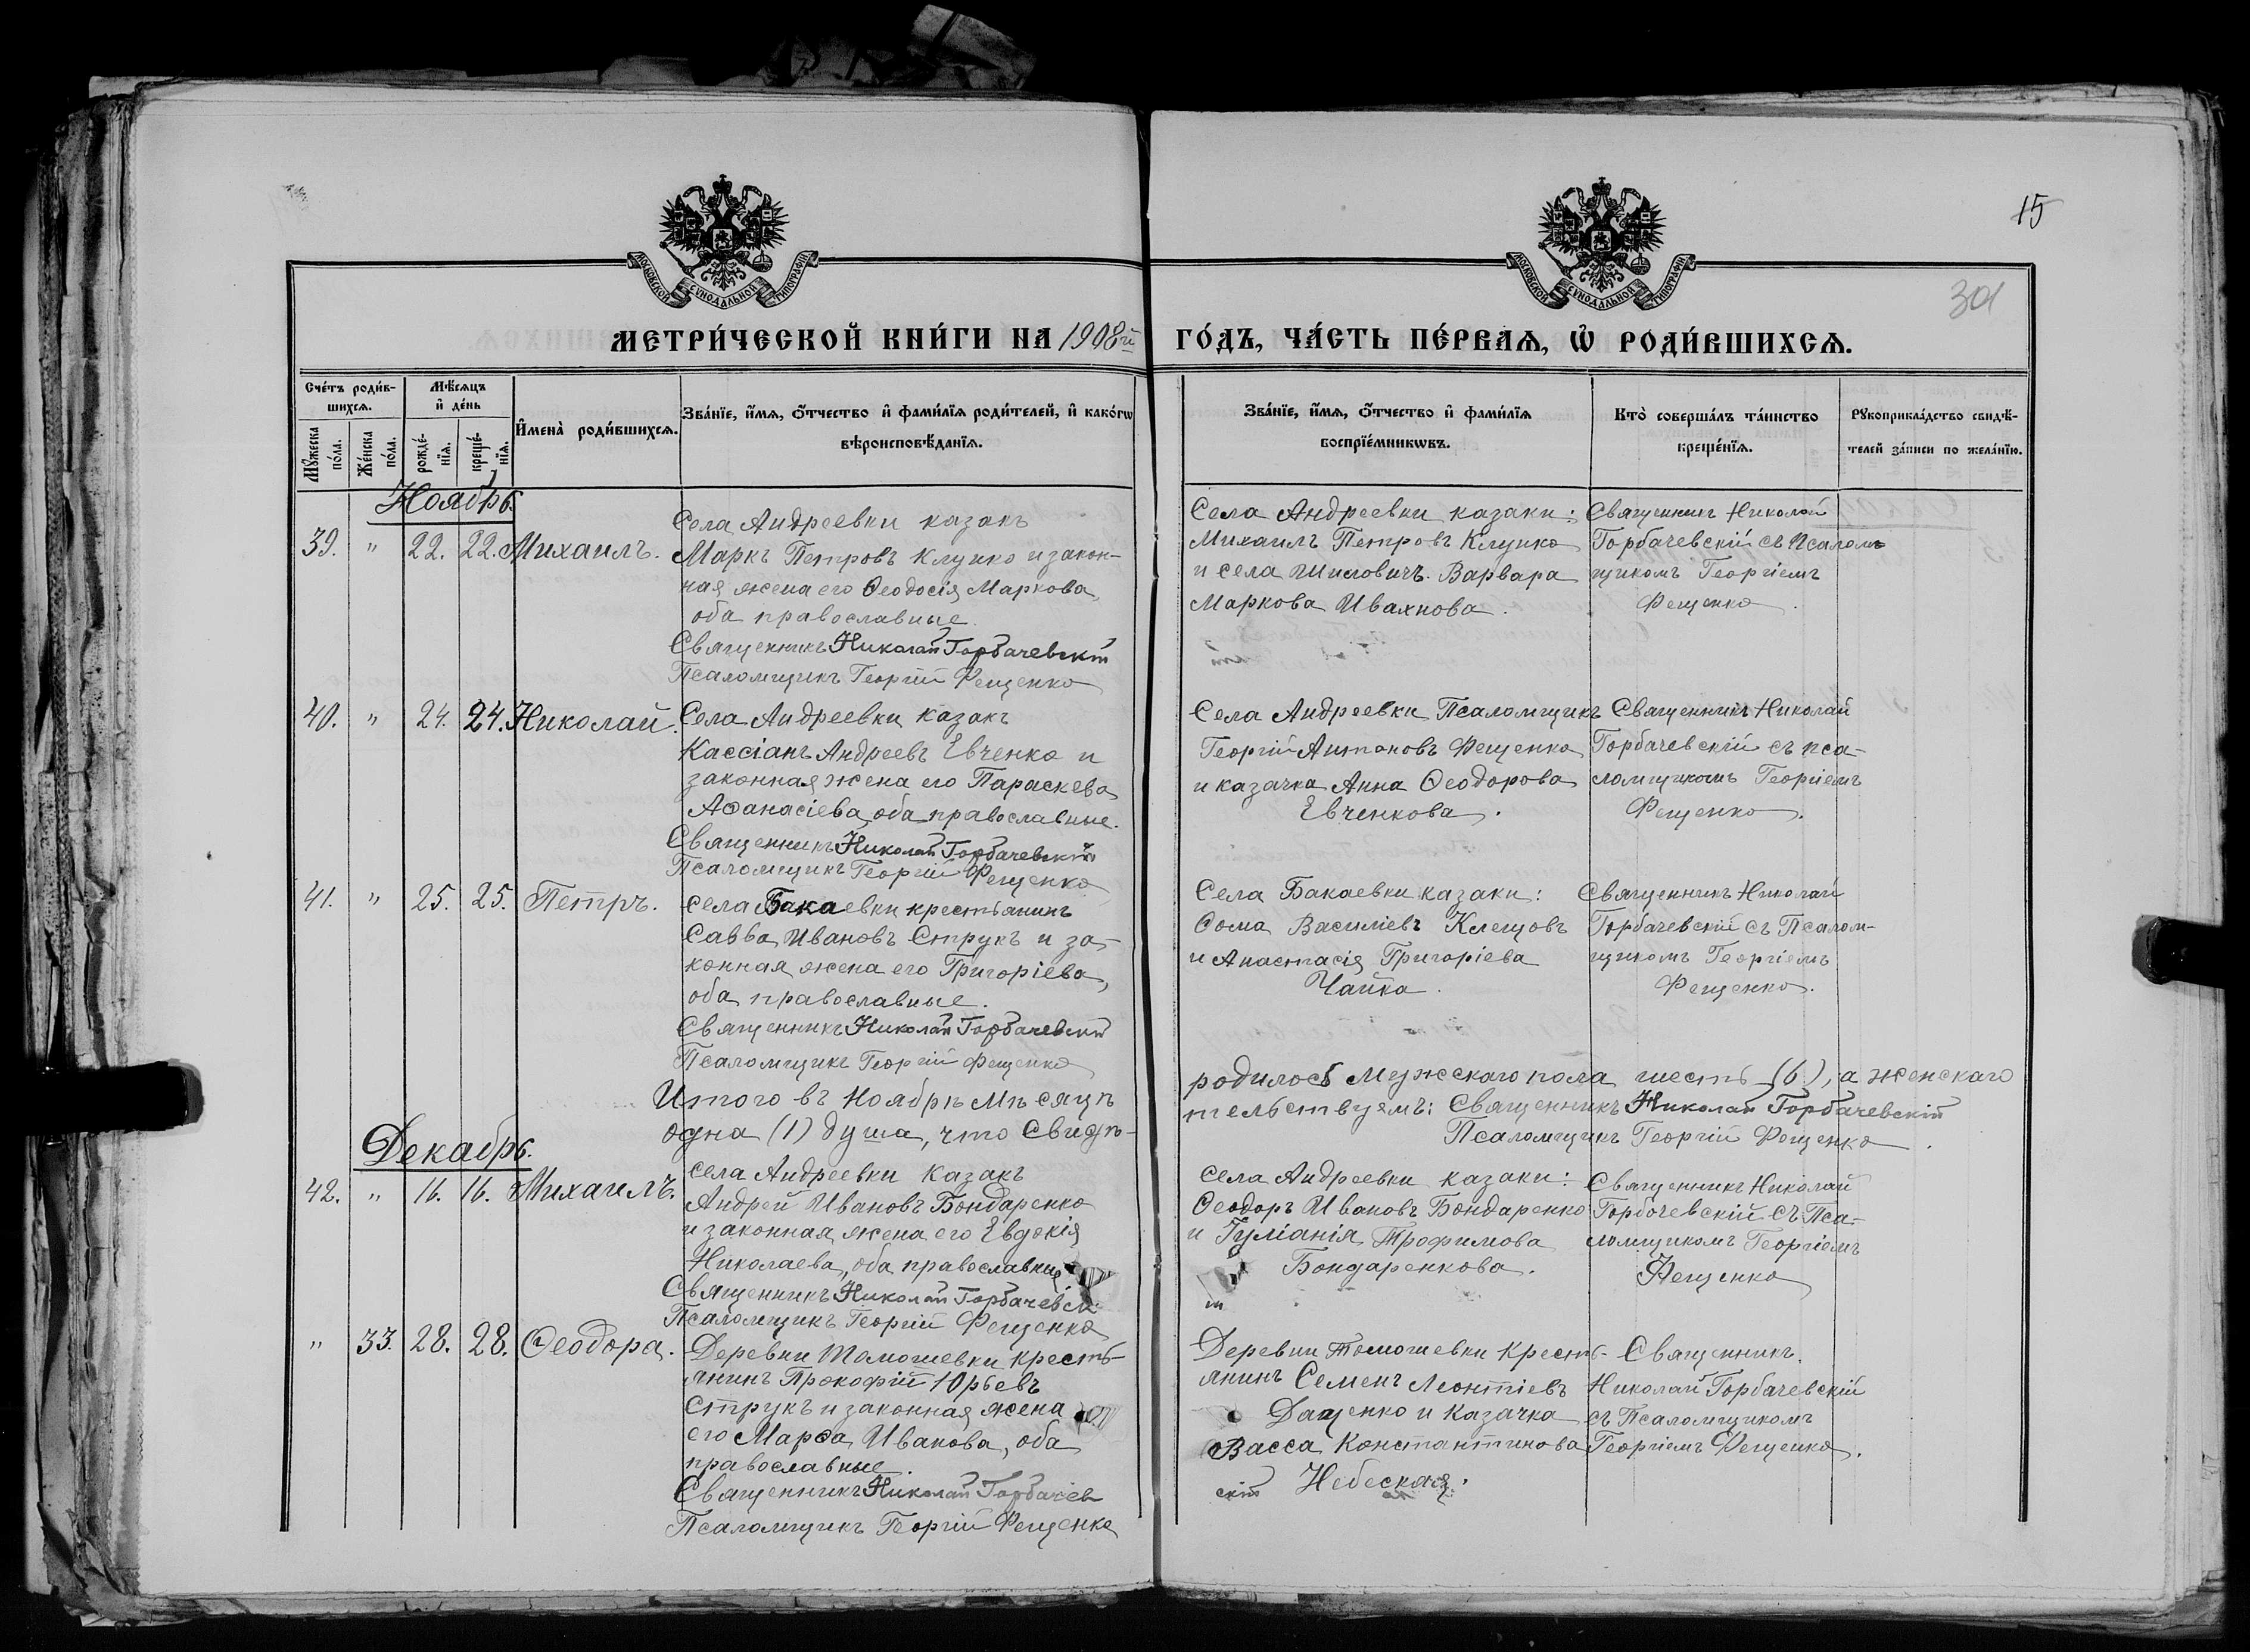 15
301
МОСКОВСКОЙ СѴНОДАЛЬНОЙ ТИПОГРАФІИ
МОСКОВСКОЙ СѴНОДАЛЬНОЙ ТИПОГРАФІИ
МЕТРИ́ЧЕСКОЙ КНИ́ГИ НА 1908й ГО́ДЪ, ЧА́СТЬ ПЕ́РВАѦ, Ѡ҆ РОДИ́ВШИХСѦ.
Сче́тъ роди́в-
шихсѧ.
Мꙋ́жеска по́ла.
Же́нска по́ла.
Мѣ́сѧцъ
и҆ де́нь
рожде́-
нїѧ.
креще́-
нїѧ.
И҆мена̀ роди́вшихсѧ.
Зва́нїе, и҆́мѧ, ѻ҆́тчество и҆ фами́лїѧ роди́телей, и҆ како́гѡ
вѣроисповѣ́данїѧ.
Зва́нїе, и҆́мѧ, ѻ҆́тчество и҆ фами́лїѧ
воспрїе́мникѡвъ.
Кто̀ соверша́лъ та́инство
креще́нїѧ.
Рꙋкоприкла́дство свидѣ́-
телей за́писи по жела́нїю.
Ноябрь.
39. " 22. 22. Михаилъ.
Села Андреевки казакъ
Маркъ Петровъ Клунко и закон-
ная жена его Ѳеодосія Маркова,
оба православные.
Священникъ Николай Горбачевскій
Псаломщикъ Георгій Фещенко
Села Андреевки казаки:
Михаилъ Петровъ Клунко
и села Шиловичъ Варвара
Маркова Ивахнова.
Священникъ Николай
Горбачевскій съ Псалом-
щикомъ Георгіемъ
Фещенко.
40. " 24. 24. Николай.
Села Андреевки казакъ
Кассіанъ Андреевъ Евченко и
законная жена его Параскева
Аѳанасіева, оба православные.
Священникъ Николай Горбачевскій
Псаломщикъ Георгій Фещенко
Села Андреевки Псаломщикъ
Георгій Антоновъ Фещенко
и казачка Анна Ѳеодорова
Евченкова.
Священникъ Николай
Горбачевскій съ пса-
ломщикомъ Георгіемъ
Фещенко.
41. " 25. 25. Петръ.
Села Бакаевки крестьянинъ
Савва Ивановъ Струкъ и за-
конная жена его Григоріева,
оба православные.
Священникъ Николай Горбачевскій
Псаломщикъ Георгій Фещенко
Села Бакаевки казаки:
Ѳома Василіевъ Клещовъ
и Анастасія Григоріева
Чайка.
Священникъ Николай
Горбачевскій съ Псалом-
щикомъ Георгіемъ
Фещенко.
Итого въ Ноябрѣ мѣсяцѣ родилось мужскаго пола шесть (6), а женскаго
одна (1) душа, что свидѣ- тельствуемъ: Священникъ Николай Горбачевскій
Псаломщикъ Георгій Фещенко.
Декабрь.
42. " 16. 16. Михаилъ.
Села Андреевки казакъ
Андрей Ивановъ Бондаренко
и законная жена его Евдокія
Николаева, оба православные
Священникъ Николай Горбачевск
Псаломщикъ Георгій Фещенко
Села Андреевки казаки:
Ѳеодоръ Ивановъ Бондаренко
и Іуліанія Трофимова
Бондаренкова.
ій
Священникъ Николай
Горбочевскій съ Пса-
ломщикомъ Георгіемъ
Фещенко
" 33. 28. 28. Ѳеодора.
Деревни Томошевки кресть-
янинъ Прокофій Юрьевъ
Струкъ и законная жена
его Марѳа Иванова, оба
православные.
Священникъ Николай Горбачев
Псаломщикъ Георгій Фещенко
Деревни Томошевки кресть-
янинъ Семенъ Леонтіевъ
Даценко и казачка
Васса Константинова
Небеская.
скій
Священникъ
Николай Горбачевскій
съ Псаломщикомъ
Георгіемъ Фещенко.